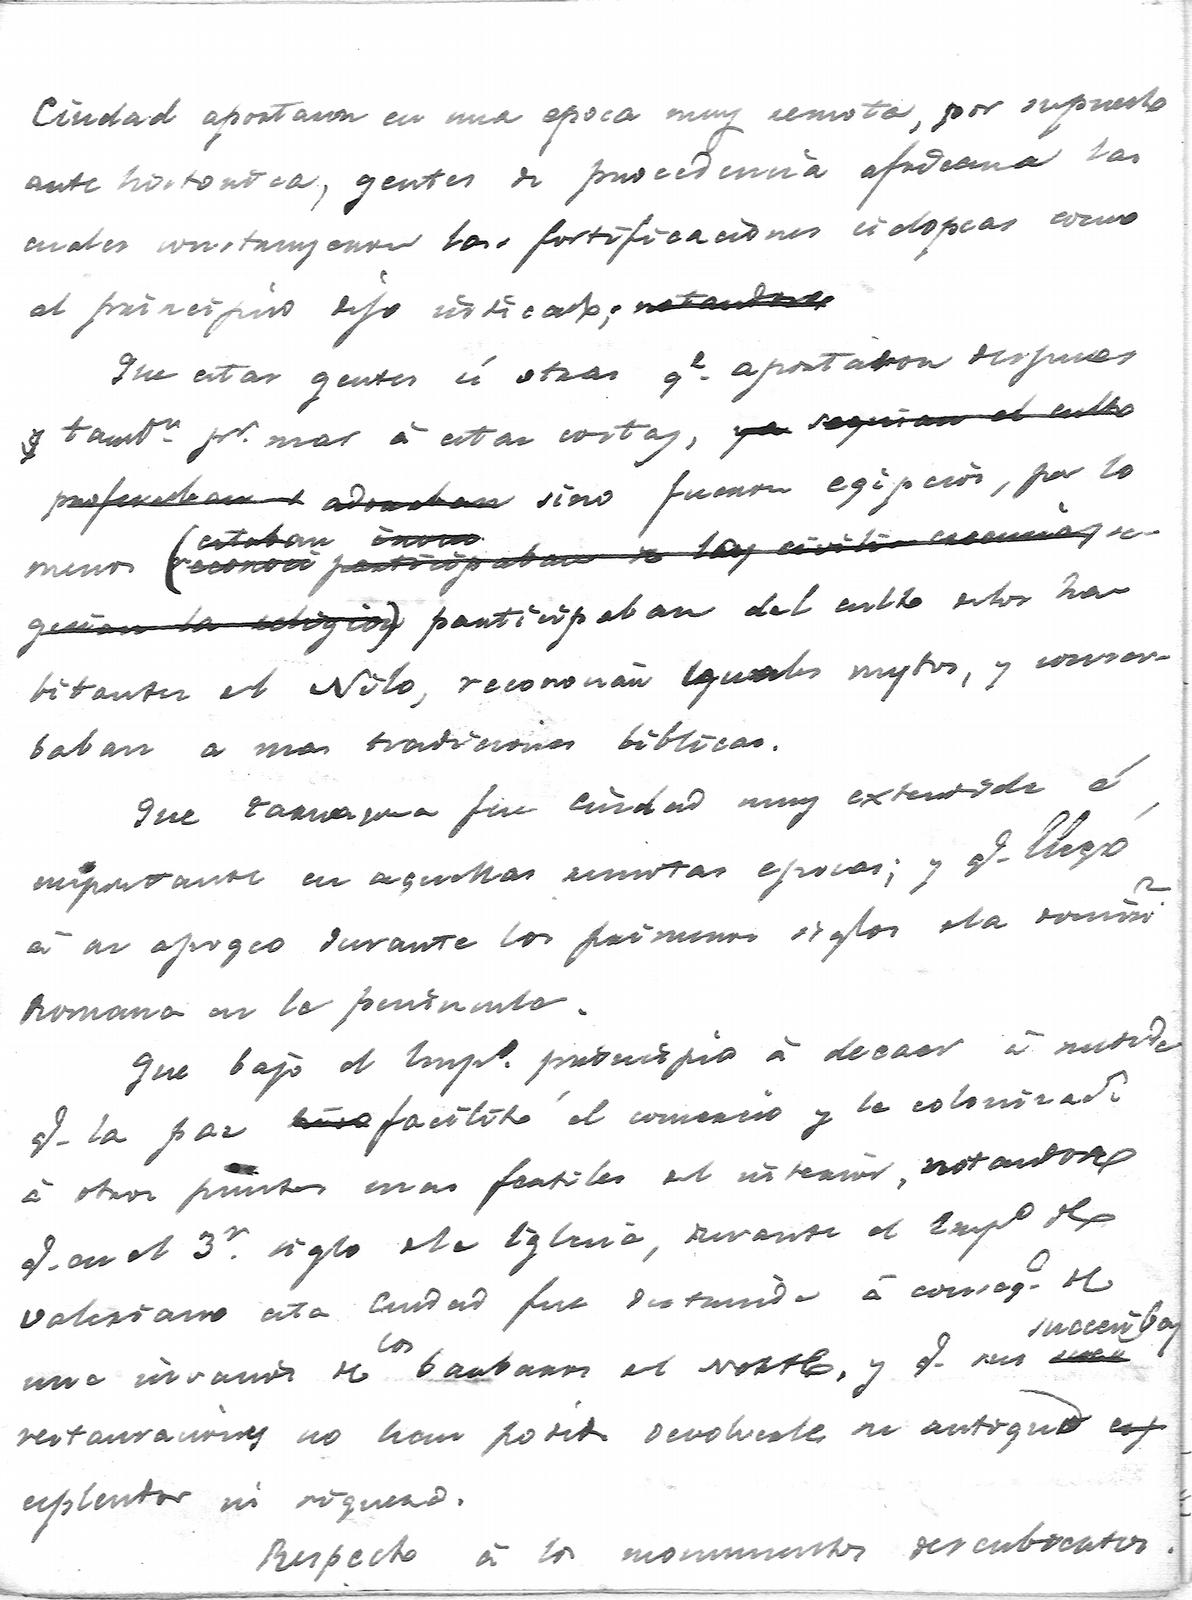 Ciudad aportaron en una epoca muy remota, por supuesto
ante historica, gentes de procedencia africana las
cuales construyeron las fortificaciones ciclopeas como
al principio dejo indicado; notandose
Que estas gentes ú otras qe. aportáron despues
y tambn. pr. mar á estas costas, ya seguian el culto
profesaban adoraban sino fueron egipcios, por lo
estaban
menos (reconoci participaban de las creencias se-
guian la religion) participaban del culto delos ha-
bitantes del Nilo, reconocian iguales mytos, y conser-
baban a mas tradiciones biblicas.
Que Tarragona fue Ciudad muy extendida é
importante en aquellas remotas epocas; y q. llegó
á su apogeo durante los primeros siglos dela dominn
Romana en la peninsula.
Que bajo el Impo. principio á decaer á medida
q. la paz hizo facilitó el comercio y la colonizaci
á otros puntos mas fertiles del interior, notandose
q. en el 3r. siglo dela Iglesia, durante el Impo de
Valeriano esta Ciudad fue destruida á conseqa. de
los
una invasion de barbaros del Norte, y q. sus
succesibas
restauraciones no han podido devolverle su antiguo es
esplendor ni riqueza.
Respecto á los monumentos descubiertos.